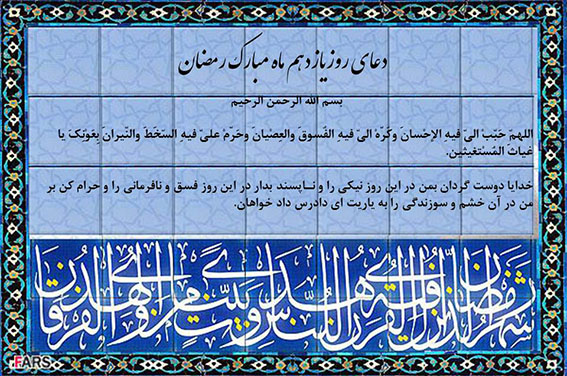 دعای روز یازدهم ماه مبارک رمضان
بسم الله الرحمن الرحیم
اللهمّ حَبّبْ الیّ فیهِ الإحْسانَ وکَرّهْ الیّ فیهِ الفُسوقَ والعِصْیانَ وحَرّمْ علیّ فیهِ السَخَطَ والنّیرانَ بِعَوْنِکَ یا
غیاثَ المُسْتغیثین.
خدایا دوست گردان بمن در این روز نیکی را و نـاپسند بدار در این روز فسق و نافرمانی را و حرام کن بر
من در آن خشم و سوزندگی را به یاریت ای دادرس داد خواهان.
شهر رمضان الذی انزل فیه القرآن هدی للناس و بینات من الهدی و الفرقان
FARS